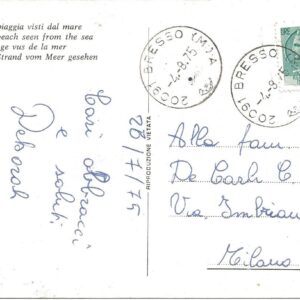 piaggia visti dal mare
beach seen from the sea
ge vus de la mer
Strand vom Meer gesehen
Cari abbracci
e saluti
Deborah
28/7/75
RIPRODUZIONE VIETATA
20091 BRESSO (MI) A
-4.8.75
20091 BRESSO
-4.8.75
Alla fam.
De Carli C.
Via Imbrian
Milano